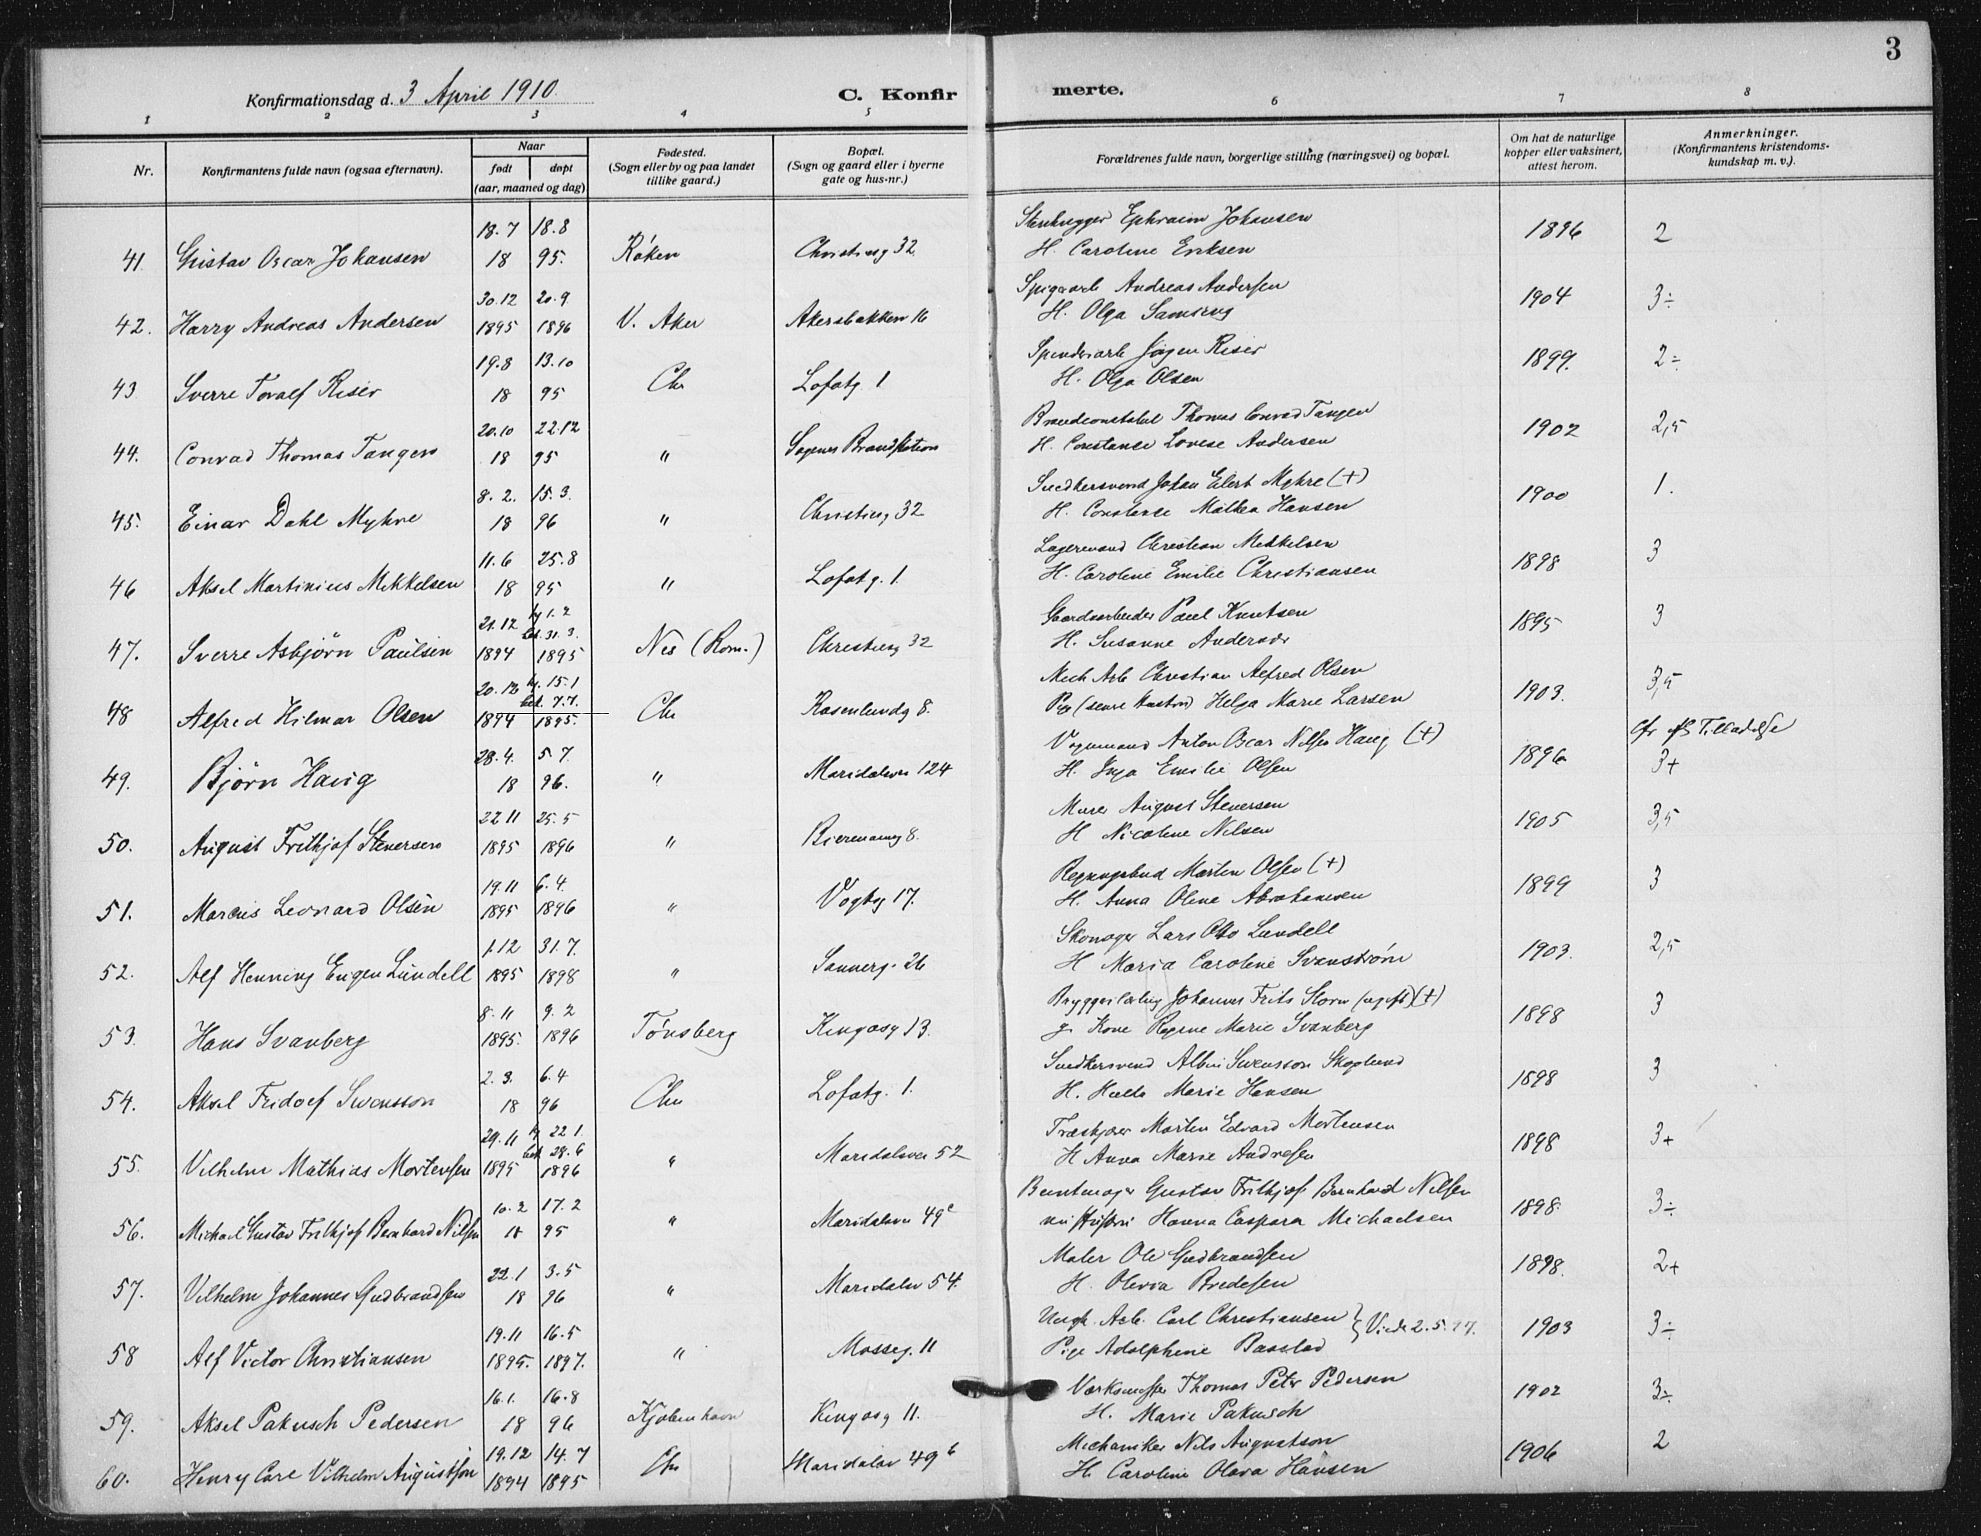 3
Konfirmationsdag d. 3 April 1910.
C. Konfir merte.
1 2 3 4 5 6 7 8
Nr. Konfirmantens fulde navn (ogsaa efternavn). Naar født døpt (aar, maaned og dag) Fødested. (Sogn eller by og paa landet tillike gaard.) Bopæl. (Sogn og gaard eller i byerne gate og hus-nr.) Forældrenes fulde navn, borgerlige stilling (næringsvei) og bopæl. Om hat de naturlige kopper eller vaksinert, attest herom. Anmerkninger. (Konfirmantens kristendoms-kundskap m. v.).
18.7 18.8 Stenhugger Ephraim Johansen
41. Gustav Oscar Johansen 18 95. Røken Christiesg 32 H. Caroline Eriksen 1896 2
30.12 20.9 Spigerarb Andreas Andersen
42. Harry Andreas Andersen 1895 1896 V. Aker Akersbakken 16 H. Olga 1904 3÷
19.8 13.10 Spinderiarb Jørgen Risér
43 Sverre Toralf Risér 18 95 Chr Lofotg. 1 H. Olga Olsen 1899. 2÷
20.10 22.12 Brandconstabel Thomas Conrad Tangen
44. Conrad Thomas Tangen 18 95 " Sagenes Brandstation H. Constance Lovise Andersen 1902 2,5
8.2. 15.3. Snedkersvend Johan Elert Myhre (+)
45. Einar Dahl Myhre 18 96 " Christiesg 32 H. Constance Mathea Hansen 1900 1.
11.6 25.8 Lagermand Christian Mikkelsen
46 Aksel Martinius Mikkelsen 18 95 " Lofotg. 1. H. Caroline Emilie Christiansen 1898 3
21.12 hj 1.2 bek. 31.3. Gaardsarbeider Paul Knutsen
47. Sverre Asbjørn Paulsen 1894 1895 Nes (Rom.) Christiesg 32 H. Susanne Andersdr 1895 3
20.12 hj. 15.1 bek. 7.7. Mech Arb Christian Alfred Olsen
48 Alfred Hilmar Olsen 1894 1895. Chr Rosenlundg 8. Pige (senere hustru) Helga Marie Larsen 1903. 3,5
28.4. 5.7. Vognmand Anton Oscar Nilsen Haug (+) Tilladelse
49. Bjørn Haug 18 96. " Maridalsvei 124 H. Inga Emilie Olsen 1896 3+
22.11 25.5 Murer August Stenersen
50. August Frithjof Stenersen 1895 1896 " Bjerenausg 8. H Nicoline Nilsen 1905 3,5
19.11 6.4. Regningsbud Martin Olsen (+)
51. Marcus Leonard Olsen 1895 1896 " Vogtsg 17. H. Anna Oline Abrahamsen 1899 3
1.12 31.7. Skomager Lars Otto Lundell
52. Alf Henning Eugen Lundell 1895 1898 " Sannerg. 26 H Maria Caroline Svanstrøm 1903. 2,5
8.11 9.2 Johannes Frits Storm (ugift) (+)
53. Hans Svanberg 1895. 1896 Tønsberg Kingosg 13. g. Kone Regine Marie Svanberg 1898 3
2.3. 6.4 Snedkersvend Albin Swensson Skoglund
54. Aksel Fridolf Swensson 18 96 Chr Lofotg. 1. H. Hulda Marie Hansen 1898 3
29.11 hj 22.1. bek 28.6 Træskjærer Martin Edvard Mortensen
55. Vilhelm Mathias Mortensen 1895 1896 " Maridalsvei 52 H Anna Marie Andresen 1898 3+
10.2 17.2 Buntmager Gustav Frithjof Bernhard Nilsen
56. Michael Gustav Frithjof Bernhard Nilsen 18 95 " Maridalsvei 49c Hanna Caspara Michaelsen 1898. 3÷
22.1 3.5 Maler Ole Gudbrandsen
57. Vilhelm Johannes Gudbrandsen 18 96 " Maridalsv 54. H. Olevia Bredesen 1898. 2+
19.11 16.5 Ungk. Arb. Carl Christiansen } Viede 2.5.97.
58 Alf Victor Christiansen 1895. 1897. " Mosseg. 11 Pige Adolphine Baastad 1903 3÷
16.1. 16.8 Værksmester Thomas Peter Pedersen
59. Aksel Pakusch Pedersen 18 96 Kjøbenhavn Kingosg 11. H. Marie Pakusch 1902 3÷
19.12 14.7 Mechaniker Nils Augustson
60. Henry Carl Vilhelm Augustson 1894 1895 Chr Maridalsv 49b H. Caroline Olava Hansen 1906 2